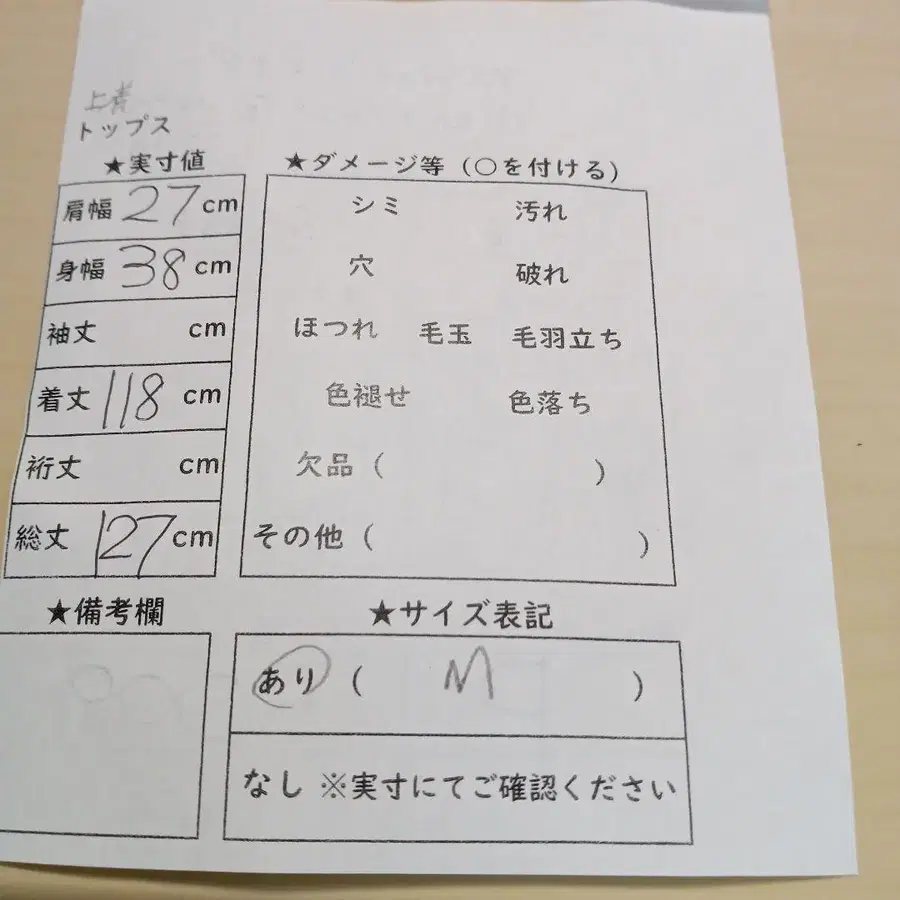 上着
トップス
★実寸値
肩幅 27 cm
身幅 38 cm
袖丈 cm
着丈 118 cm
裄丈 cm
総丈 127 cm
★ダメージ等（○を付ける）
シミ 汚れ
穴 破れ
ほつれ 毛玉 毛羽立ち
色褪せ 色落ち
欠品（ ）
その他（ ）
★備考欄
★サイズ表記
あり（ M ）
なし ※実寸にてご確認ください